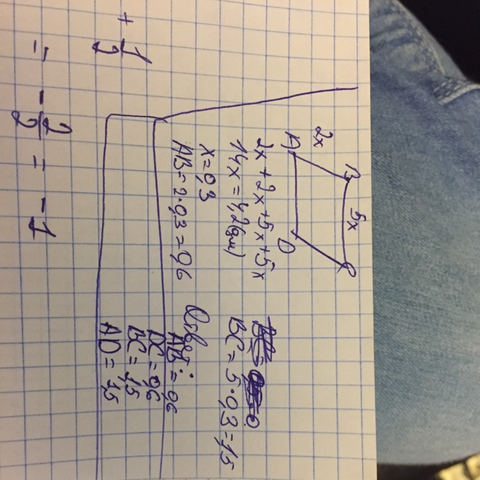 B 5x C
2x
A D
2x + 2x + 5x + 5x
14x = 4,2 (дм)
x = 0,3
AB = 2 · 0,3 = 0,6
BC = 5 · 0,3 = 1,5
Ответ:
AB = 0,6
DC = 0,6
BC = 1,5
AD = 1,5
+ 1/2
= - 2/2 = -1